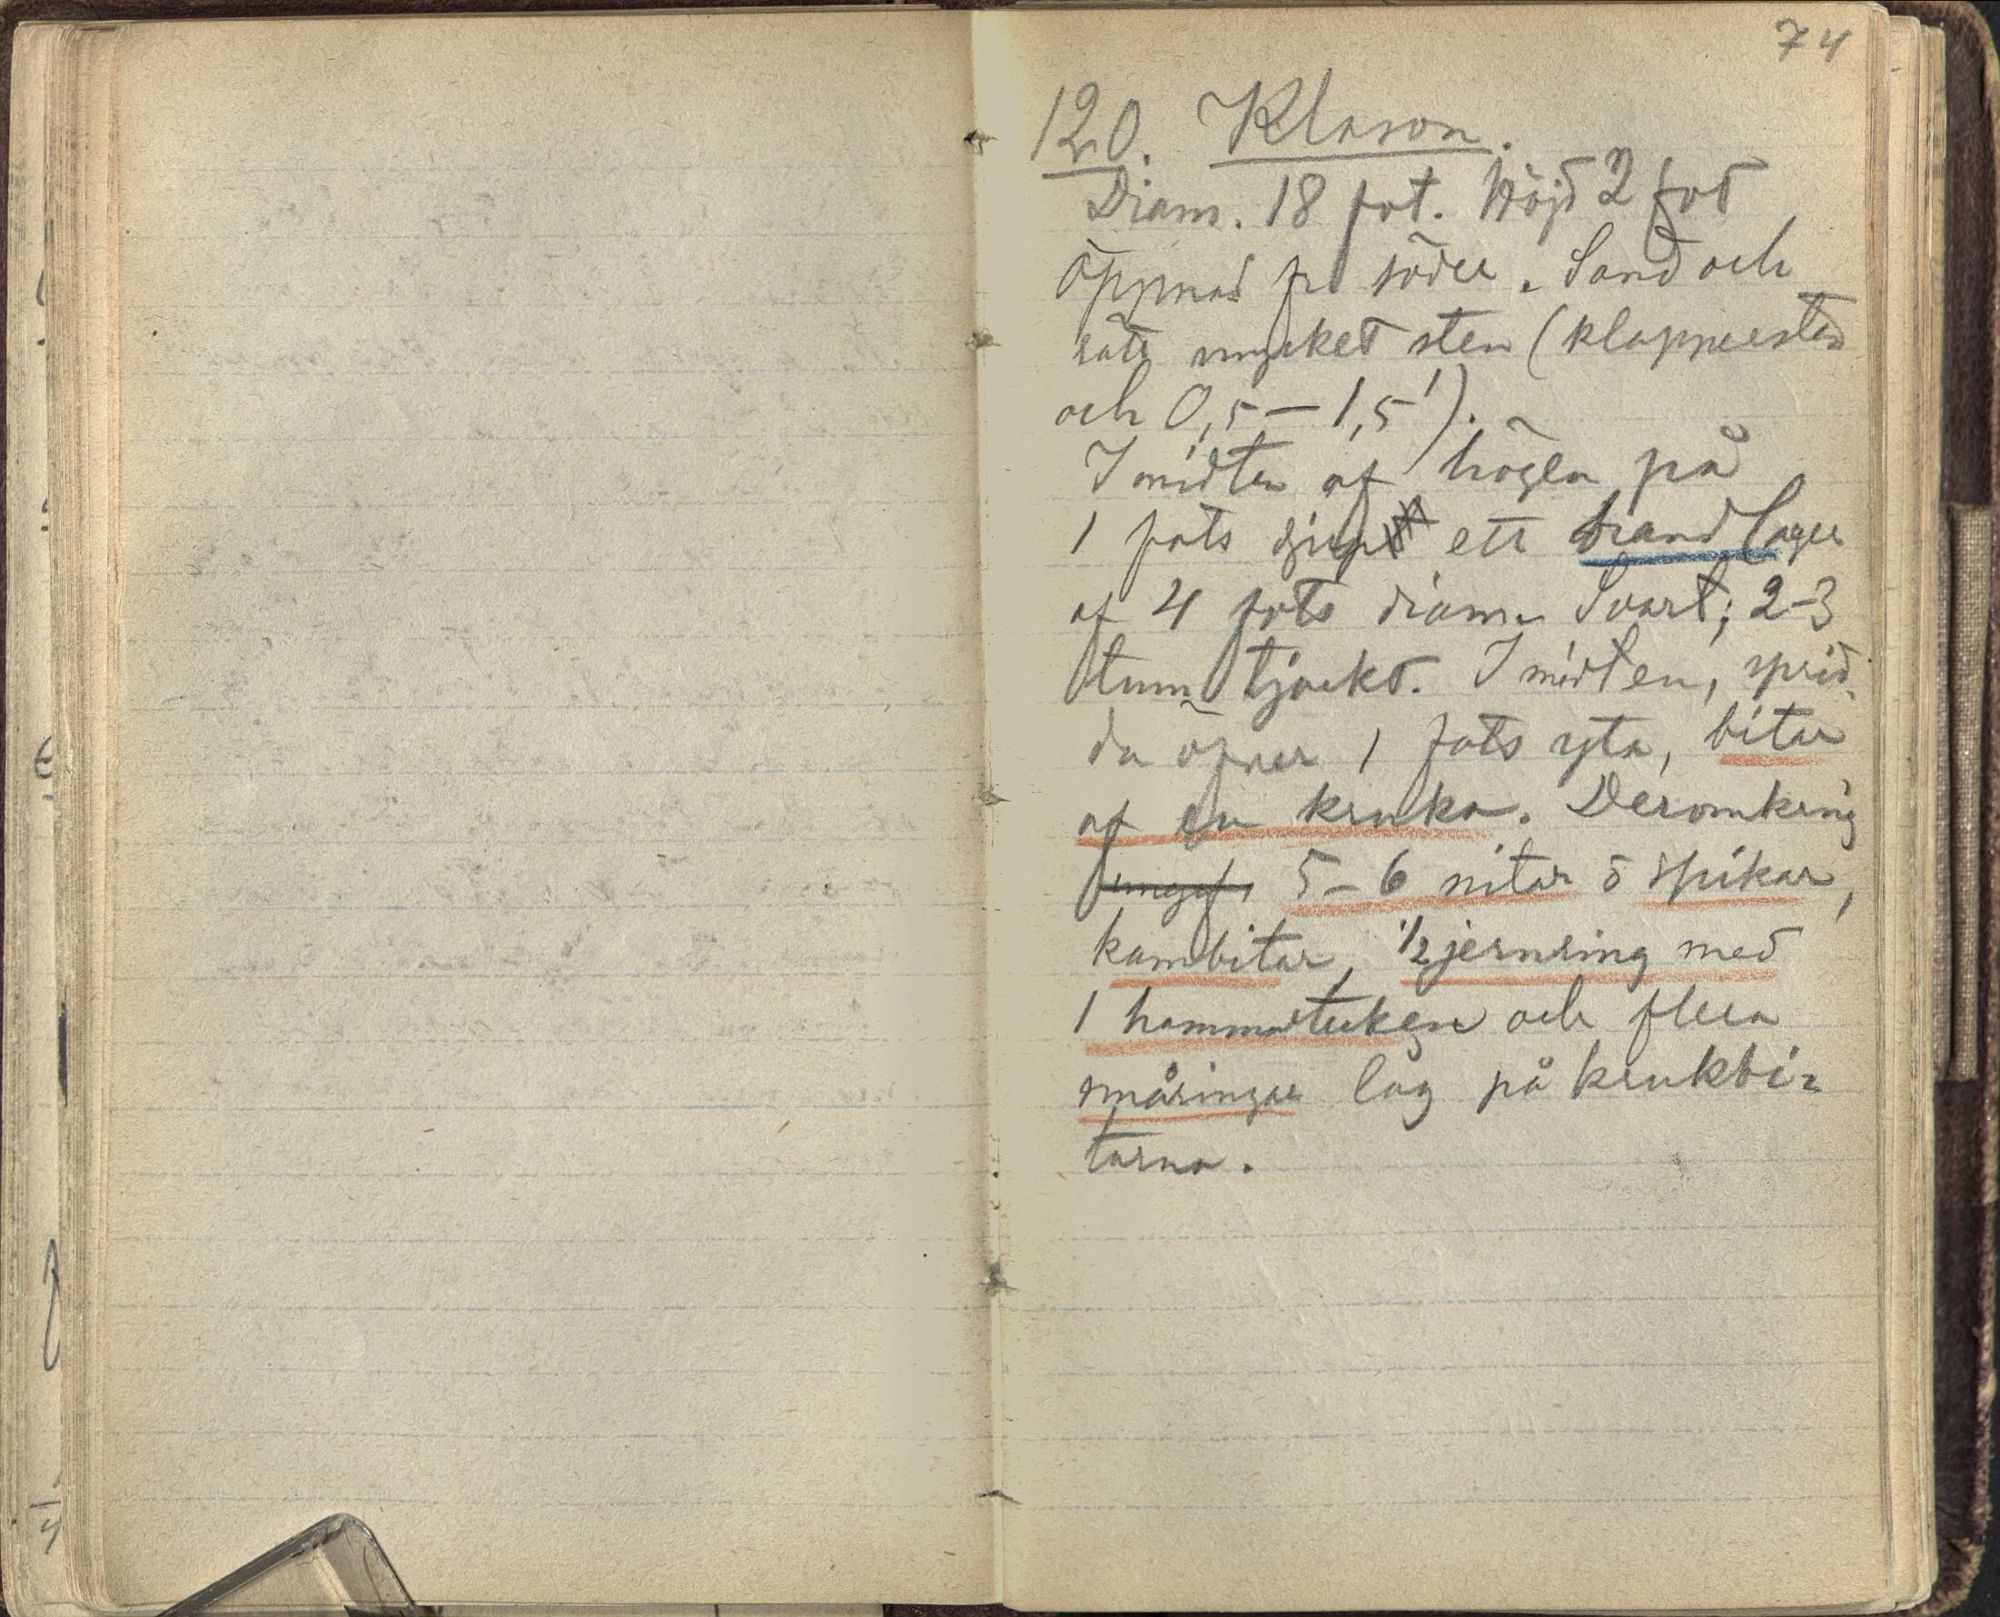 74
120. Klason.
Diam. 18 fot. Höjd 2 fot
öppnad fr söder. Sand och
rätt mycket sten (klappersten
och 0,5 – 1,5').
I midten af högen på
1 fots djup ett brandlager
af 4 fots diam. Svart; 2-3
tum tjockt. I midten, sprid-
da öfver 1 fots yta, bitar
af en kruka. Deromkring
5 – 6 nitar o spikar,
kambitar, 1/2 jernring med
1 och flera
småringar låg på krukbi-
tarna.